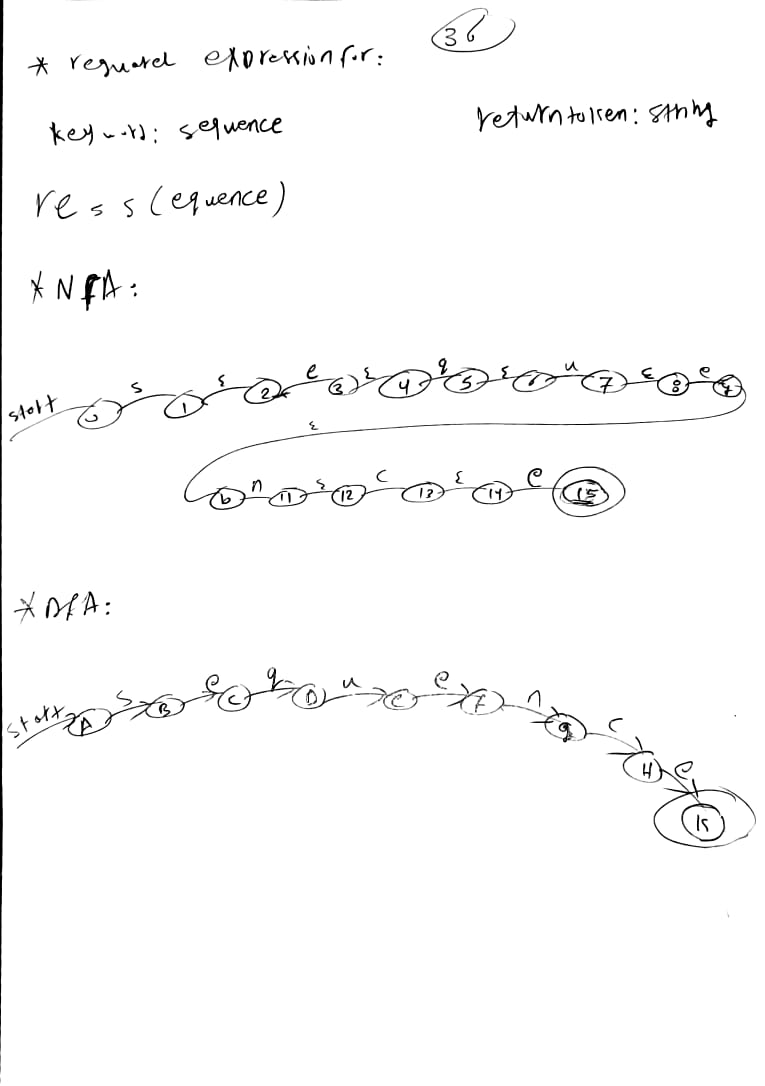 36
* regularel expression for:
keyword: sequence
return token: string
re = s (equence)
* NFA:
start 0 s 1 ε 2 e 3 ε 4 q 5 ε 6 u 7 ε 8 e 9
ε
10 n 11 ε 12 c 13 ε 14 e 15
* DFA:
start A s B e C q D u E e F n g c H e 15